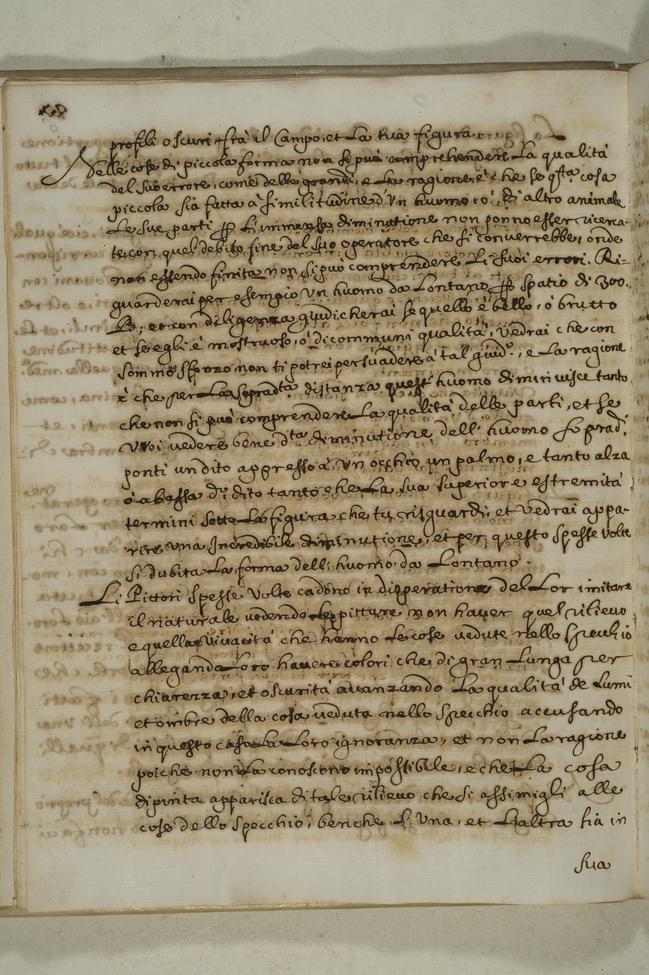 profili oscuri frà il Campo, et La tua figura.
Nelle cose di piccola forma non si può comprehendere La qualità
del suo errore, come delle grandi, e La ragione è, che se qsta cosa
piccola sia fatta à similitudine d'un huomo, ò, di altro animale
Le sue parti p L'immensa diminutione non ponno esser ricerca-
te con quel debito fine del suo operatore che si converrebbe, onde
non essendo finita non si può comprendere Li suoi errori. Ri=
guarderai per esempio un huomo da Lontano p spatio di 300.
Bb.; et con diligenza giudicherai se quello è bello, ò brutto
et se egli è mostruoso, ò di communi qualità, Vedrai che con
sommo sforzo non ti potrei persuadere à tal giuds., e La ragione
è che per La sopradta distanza quest huomo diminuisce tanto,
che non si può comprendere La qualità delle parti, et se
Vuoi vedere bene dta diminutione dell' huomo soprads.
ponti un dito appresso à un occhio un palmo, e tanto alza
ò abassa ds. dito tanto che La sua superiore estremità
termini sotto La figura che tu risguardi, et vedrai appa-
rire una Incredibile diminutione, et per questo spesse volte
si dubita La forma dell' huomo da Lontano.
Li Pittori spesse Volte cadono in disperatione del Lor imitare
il naturale vedendo Le pitture non haver quel rilievo
e quella vivacità che hanno Le cose vedute nello specchio
allegando Loro havere colori, che di gran Lunga per
chiarezza, et oscurità avanzando La qualità de Lumi
et ombre della cosa veduta nello specchio accusando
in questo caso La Loro ignoranza, et non La ragione
poiche non La conoscono impossibile, e che La cosa
dipinta apparisca di tale rilievo che si assimigli alle
cose dello specchio, benche L'una, et L'altra sia in
sua